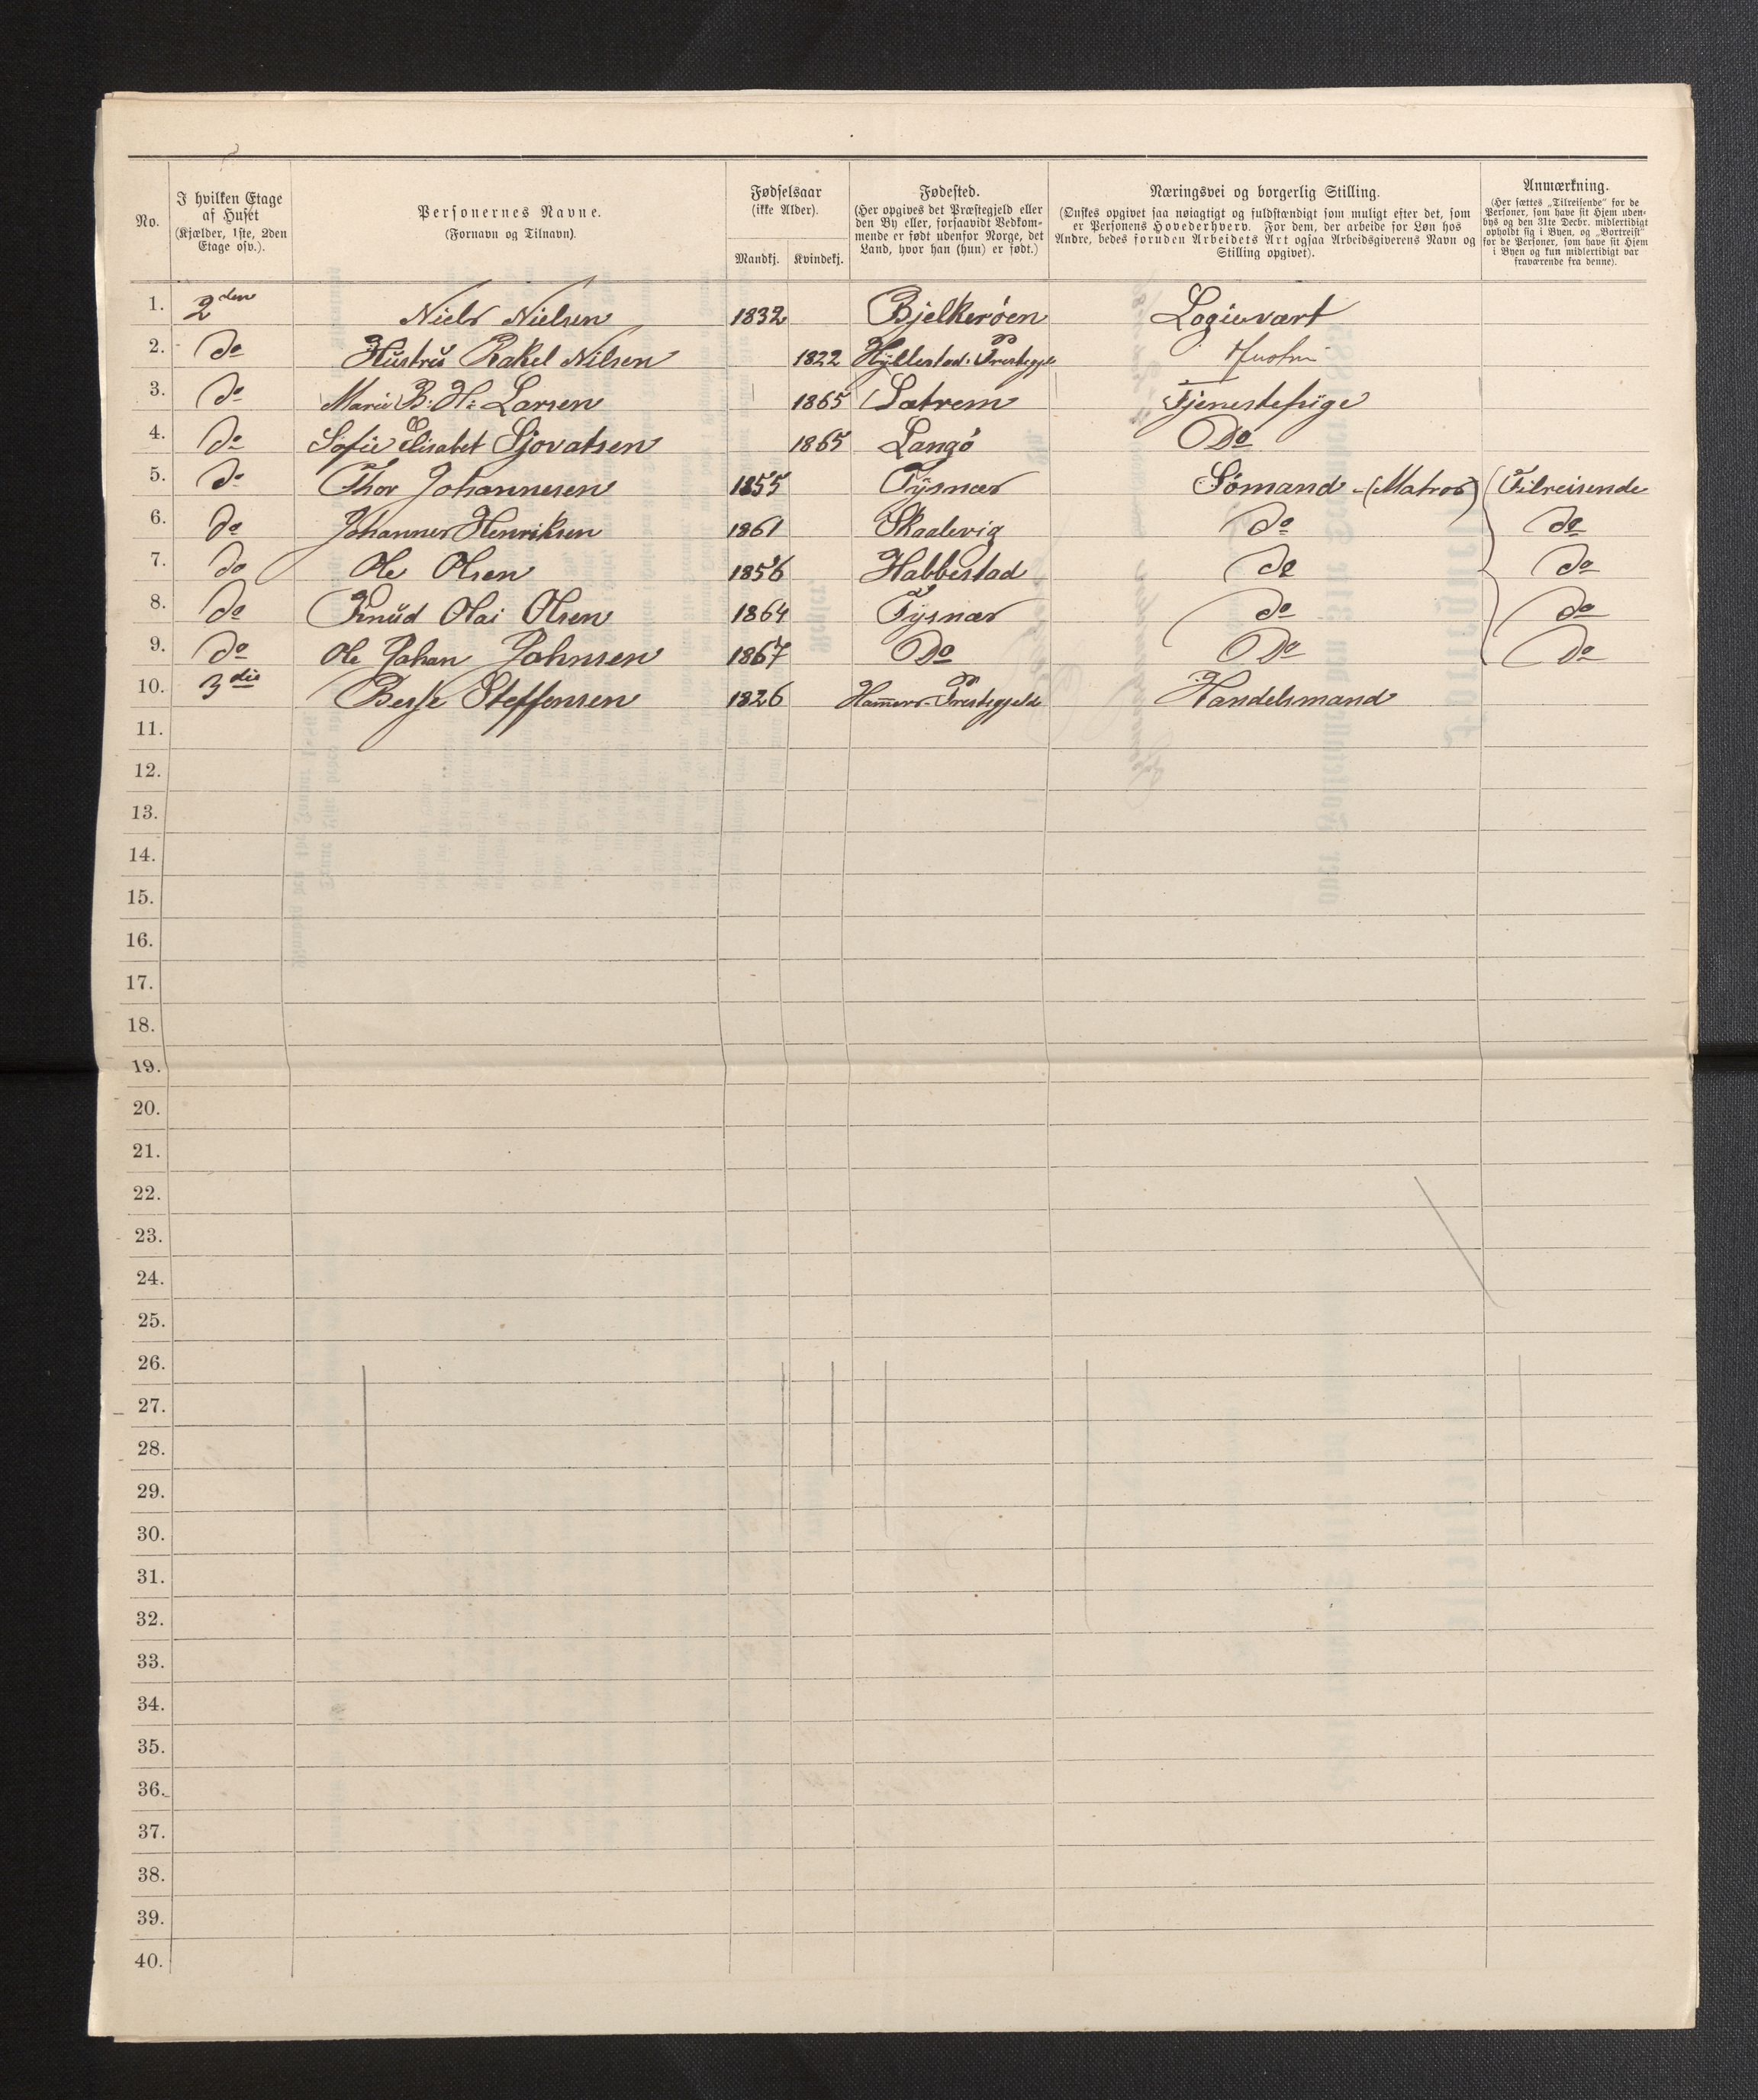 No.
I hvilken Etage
af Huset
(Kjælder, 1ste, 2den
Etage osv.).
Personernes Navne.
(Fornavn og Tilnavn).
Fødselsaar
(ikke Alder).
Mandkj. Kvindekj.
Fødested.
(Her opgives det Præstegjeld eller
den By eller, forsaavidt Vedkom-
mende er født udenfor Norge, det
Land, hvor han (hun) er født.)
Næringsvei og borgerlig Stilling.
(Ønskes opgivet saa nøiagtigt og fuldstændigt som muligt efter det, som
er Personens Hovederhverv. For dem, der arbeide for Løn hos
Andre, bedes foruden Arbeidets Art ogsaa Arbeidsgiverens Navn og
Stilling opgivet).
Anmærkning.
(Her sættes „Tilreisende“ for de
Personer, som have sit Hjem uden-
bys og den 31te Decbr. midlertidigt
opholdt sig i Byen, og „Bortreist“
for de Personer, som have sit Hjem
i Byen og kun midlertidigt var
fraværende fra denne).
1. 2den Niels Nielsen 1832 Bjelkerøen Logievært
2. do Hustru Rakel Nilsen 1822 Hyllestad Prestegjeld Hustru
3. do Marie B: H: Larsen 1865 Satrem Tjenestepige
4. do Sofie Elisabet Sjovatsen 1865 Langø Do
5. do Thor Johannesen 1855 Tysnæs Sømand - (Matros) Tilreisende
6. do Johannes Henriksen 1861 Skaalevig do do
7. do Ole Olsen 1856 Habbestad do do
8. do Knud Olai Olsen 1864 Tysnæs do do
9. do Ole Johan Johnsen 1867 Do Do Do
10. 3die Berje Steffensen 1826 Hammers-Prestegjeld Handelsmand
11.
12.
13.
14.
15.
16.
17.
18.
19.
20.
21.
22.
23.
24.
25.
26.
27.
28.
29.
30.
31.
32.
33.
34.
35.
36.
37.
38.
39.
40.